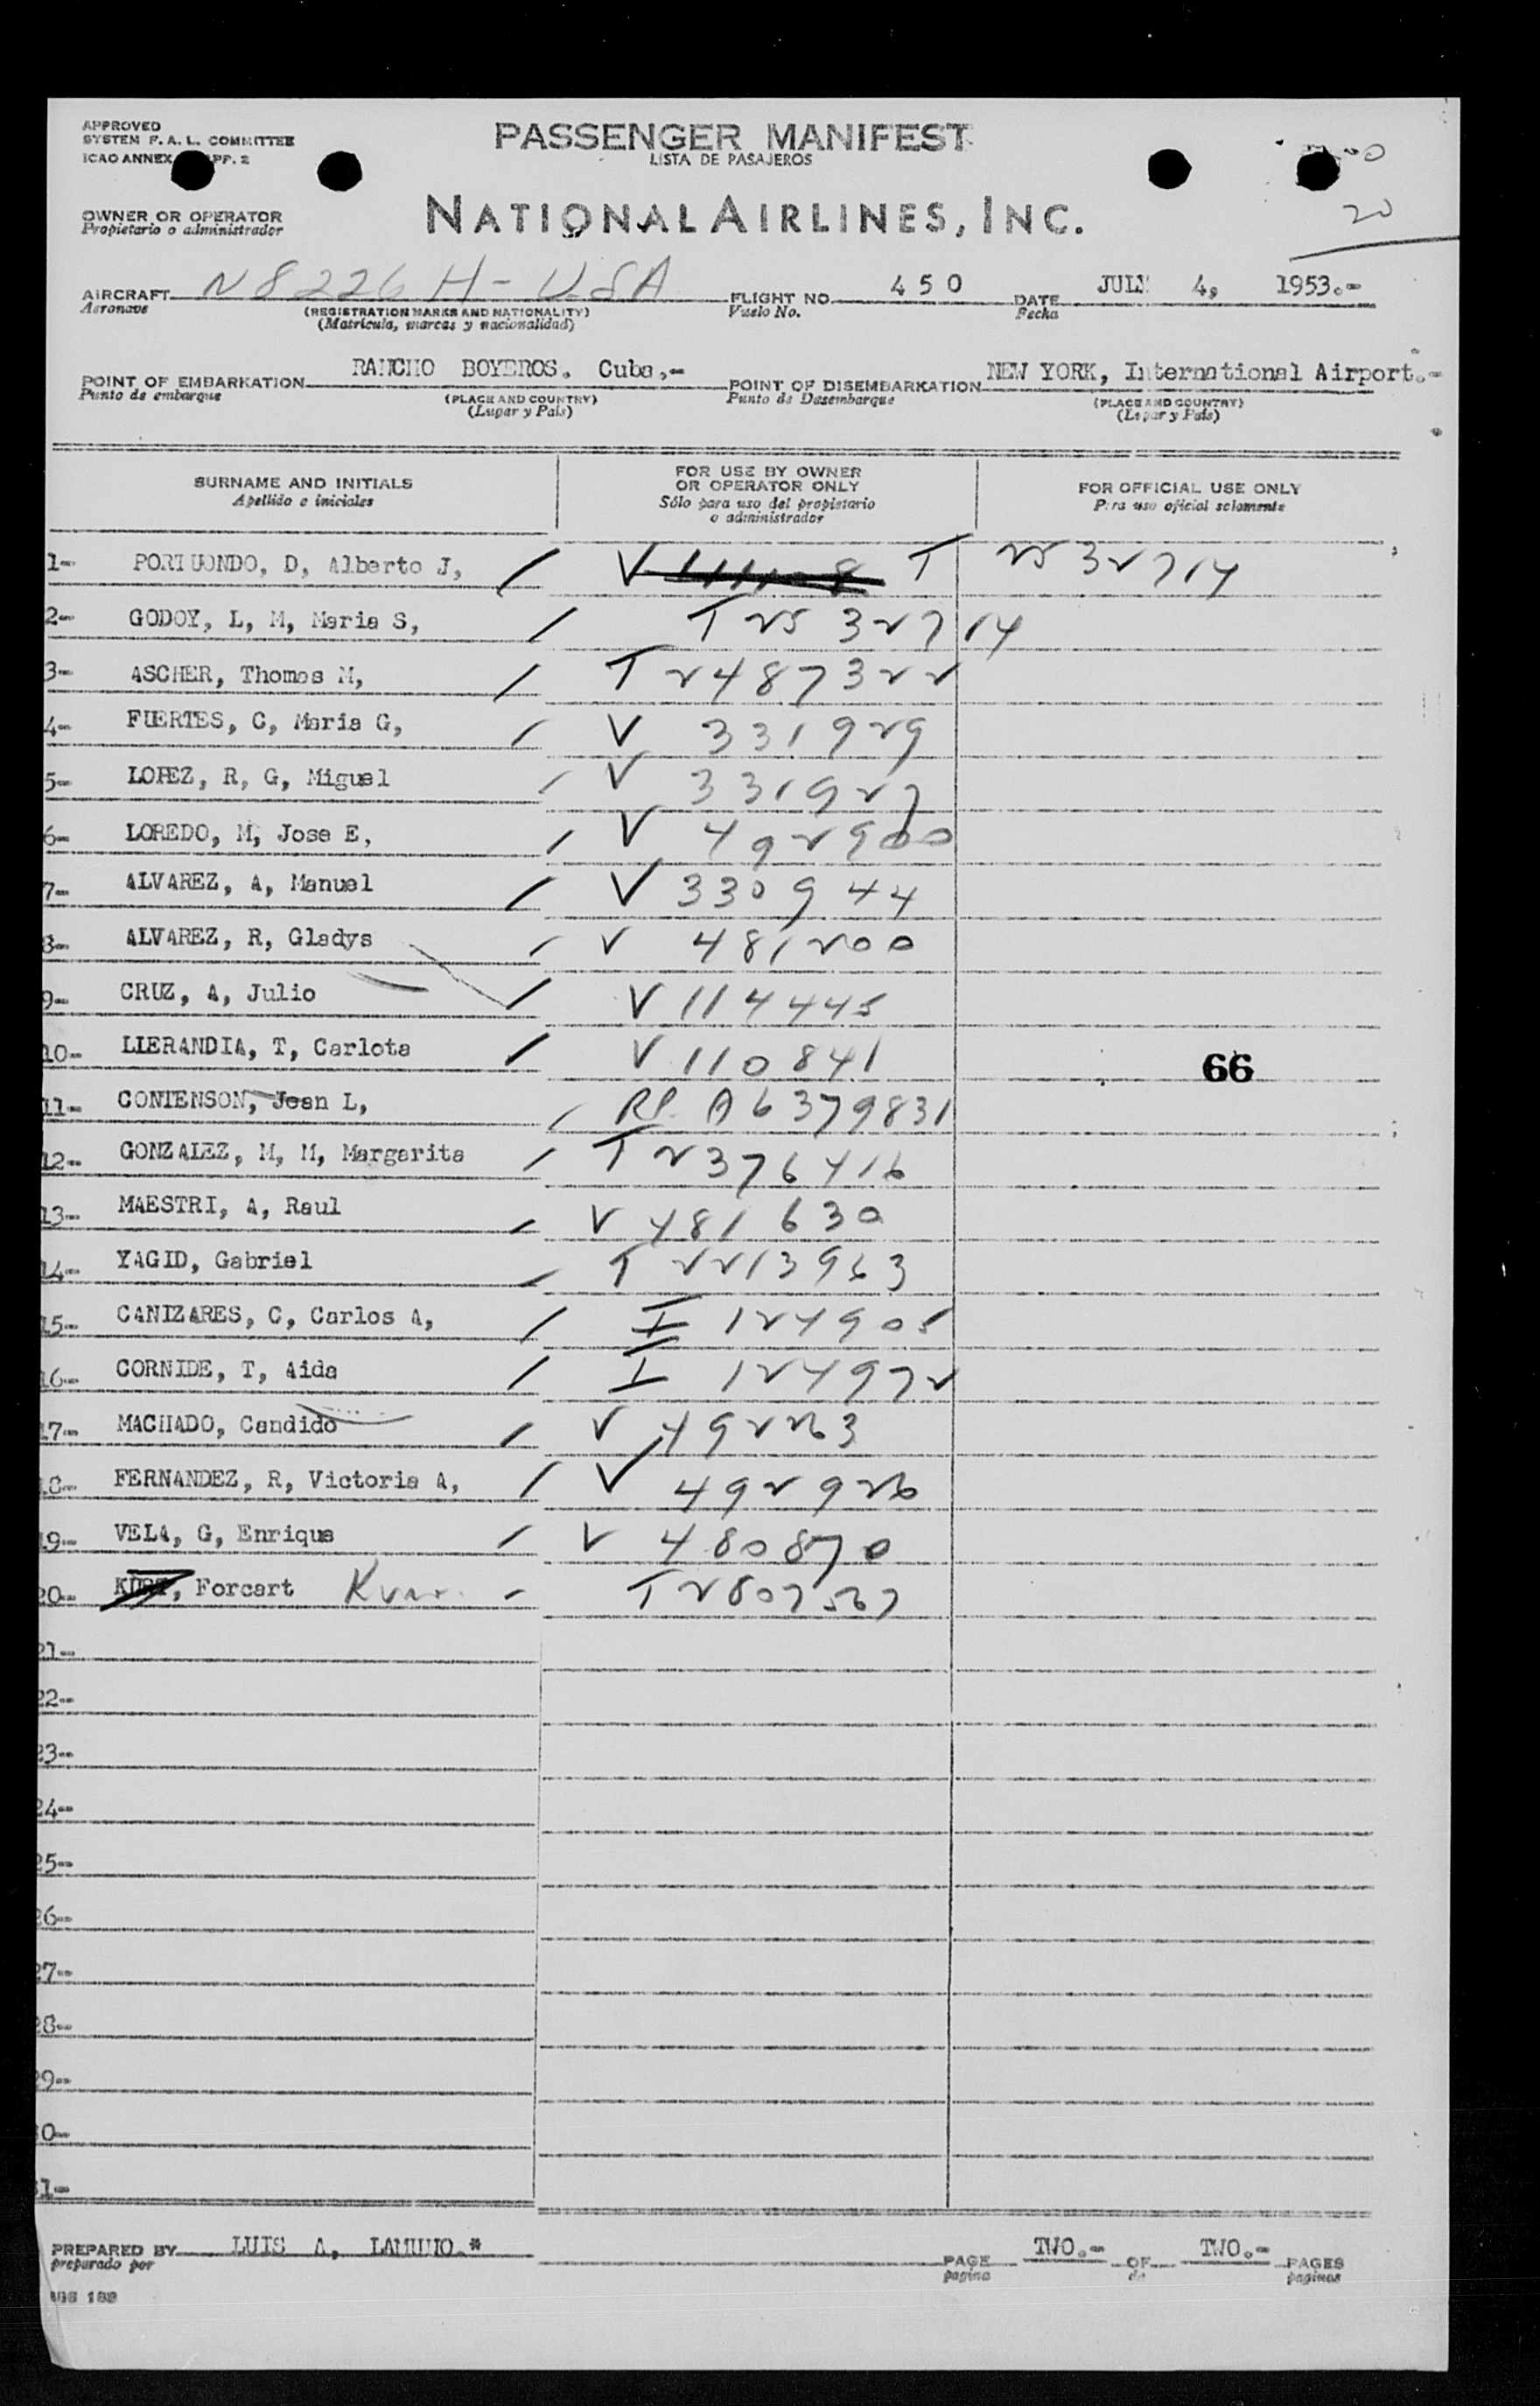 APPROVED
SYSTEM F. A. L. COMMITTEE
ICAO ANNEX
PASSENGER MANIFEST
LISTA DE PASAJEROS
OWNER OR OPERATOR
Propietario o administrador
NATIONAL AIRLINES, INC.
20
AIRCRAFT N8226H-USA FLIGHT NO. 450 DATE JULY 4, 1953.-
Aeronave (REGISTRATION MARKS AND NATIONALITY) Vuelo No. Fecha
(Matricula, marcas y nacionalidad)
POINT OF EMBARKATION RANCHO BOYEROS. Cuba,- POINT OF DISEMBARKATION NEW YORK, International Airport.-
Punto de embarque (PLACE AND COUNTRY) Punto de Desembarque (PLACE AND COUNTRY)
(Lugar y País) (Lugar y País)
SURNAME AND INITIALS
Apellido e iniciales
FOR USE BY OWNER
OR OPERATOR ONLY
Sólo para uso del propietario
o administrador
FOR OFFICIAL USE ONLY
Para uso oficial solamente
1- PORTUONDO, D, Alberto J, / V T 2532714
2- GODOY, L, M, Maria S, / T 2532714
3- ASCHER, Thomas M, / T 2487322
4- FUERTES, C, Maria G, / V 331929
5- LOPEZ, R, G, Miguel / V 331927
6- LOREDO, M, Jose E, / V 492900
7- ALVAREZ, A, Manuel / V 330944
8- ALVAREZ, R, Gladys / V 481200
9- CRUZ, A, Julio / V 114445
10- LLERANDIA, T, Carlota / V 110841
66
11- CONTENSON, Jean L, / RP A6379831
12- GONZALEZ, M, M, Margarita / T 2376416
13- MAESTRI, A, Raul / V 481630
14- YAGID, Gabriel / T 2213963
15- CANIZARES, C, Carlos A, / I 124905
16- CORNIDE, T, Aida / I 124972
17- MACHADO, Candido / V 492263
18- FERNANDEZ, R, Victoria A, / V 492926
19- VELA, G, Enrique / V 480870
20- KURT, Forcart - T 2807567
21-
22-
23-
24-
25-
26-
27-
28-
29-
30-
31-
PREPARED BY LUIS A, PAGE TWO.- OF TWO.- PAGES
preparado por pagina de paginas